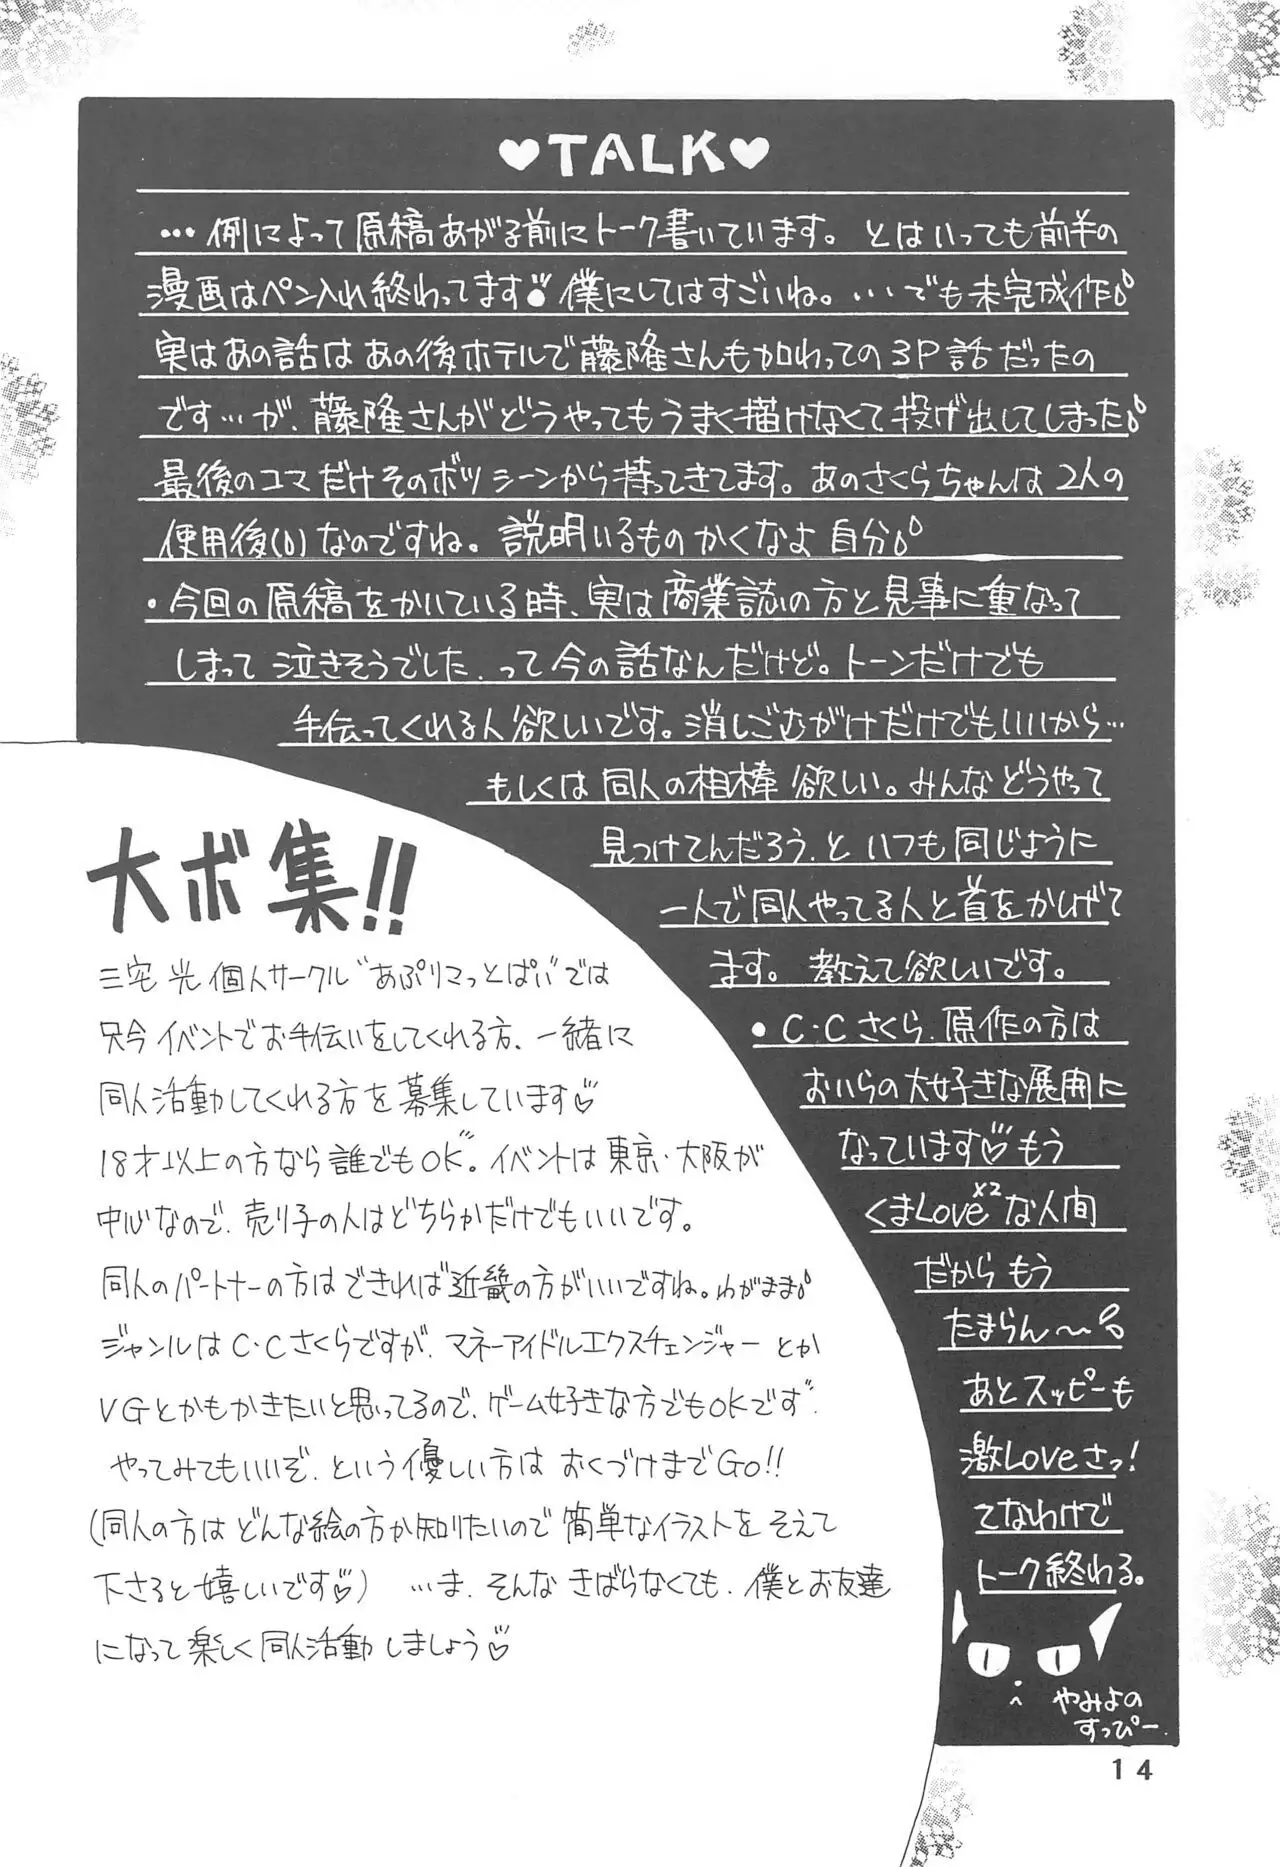 ♥TALK♥
…例によって原稿あがる前にトーク書いています。とはいっても前半の
漫画はペン入れ終わってます 僕にしてはすごいね。…でも未完成作
・今回の原稿をかいている時、実は商業誌の方と見事に重なって
しまって泣きそうでした、って今の話なんだけど。トーンだけでも
手伝ってくれる人欲しいです。消しごむがけだけでもいいから…
もしくは同人の相棒欲しい。みんなどうやって
見つけてんだろう、と いつも同じように
一人で同人やってる人と首をかしげて
ます。教えて欲しいです。
・C・Cさくら、原作の方は
おいらの大好きな展開に
なっています♡もう
くまLove×2な人間
だからもう
たまらん〜
あとスッピーも
激Loveさっ!
てなわけで
トーク終わる。
やみよの
すっぴー。
大ボ集!!
三宅 光 個人サークル“あぷりマっとぱい”では
只今イベントでお手伝いをしてくれる方、一緒に
同人活動してくれる方を募集しています♡
18才以上の方なら誰でもOK。イベントは東京・大阪が
中心なので、売り子の人はどちらかだけでもいいです。
同人のパートナーの方はできれば近畿の方がいいですね。わがまま
ジャンルはC・Cさくらですが、マネーアイドルエクスチェンジャーとか
VGとかもかきたいと思ってるので、ゲーム好きな方でもOKです。
やってみてもいいぞ、という優しい方はおくづけまでGo!!
(同人の方はどんな絵の方か知りたいので簡単なイラストをそえて
下さると嬉しいです♡) …ま、そんなきばらなくても、僕とお友達
になって楽しく同人活動しましょう♡
14